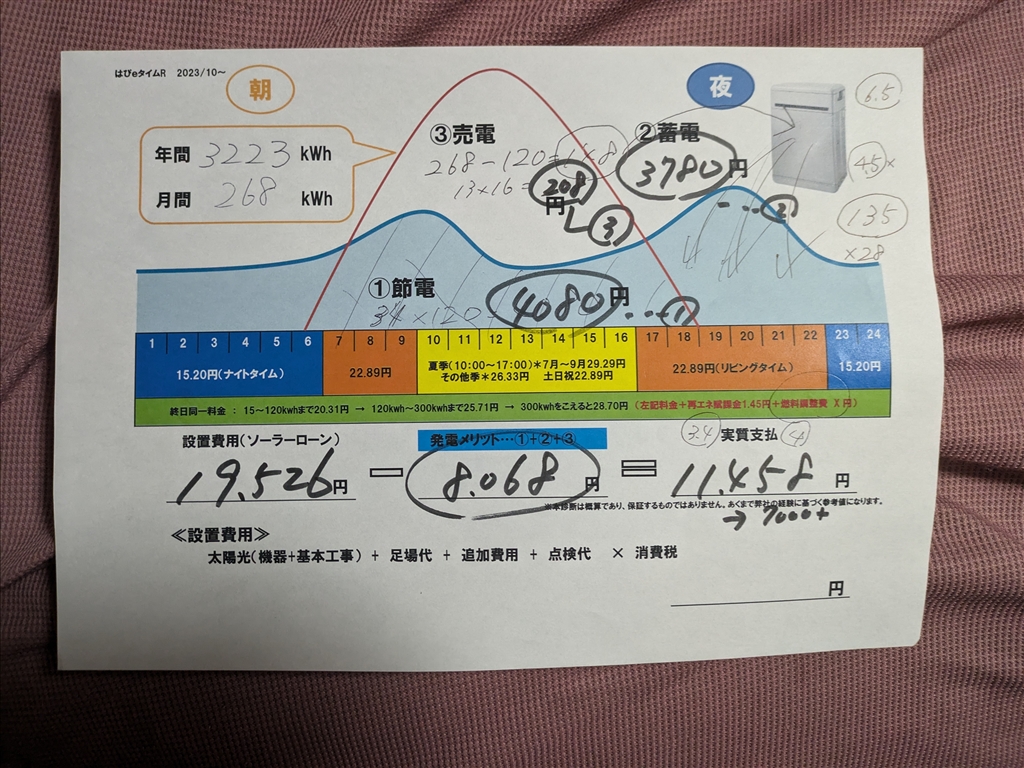 はぴeタイムR 2023/10～
朝
夜
年間 3223 kWh
月間 268 kWh
③売電
268－120＝148
13×16＝
208
円
③
②蓄電
3780円
…②
6.5
4.5×
135
×28
①節電
34×120
4080円
…①
1 2 3 4 5 6 7 8 9 10 11 12 13 14 15 16 17 18 19 20 21 22 23 24
15.20円(ナイトタイム)
22.89円
夏季(10:00～17:00)＊7月～9月29.29円
その他季＊26.33円 土日祝22.89円
22.89円(リビングタイム)
15.20円
終日同一料金 ： 15～120kwhまで20.31円 → 120kwh～300kwhまで25.71円 → 300kWhをこえると28.70円 (左記料金＋再エネ賦課金1.45円＋燃料調整費 X円)
設置費用(ソーラーローン)
発電メリット…①+②+③
3.4
実質支払
4
19.526円 － 8.068円 ＝ 11.458円
※本診断は概算であり、保証するものではありません。あくまで弊社の経験に基づく参考値になります。
→ 7000+
≪設置費用≫
太陽光(機器+基本工事) + 足場代 + 追加費用 + 点検代 × 消費税
円